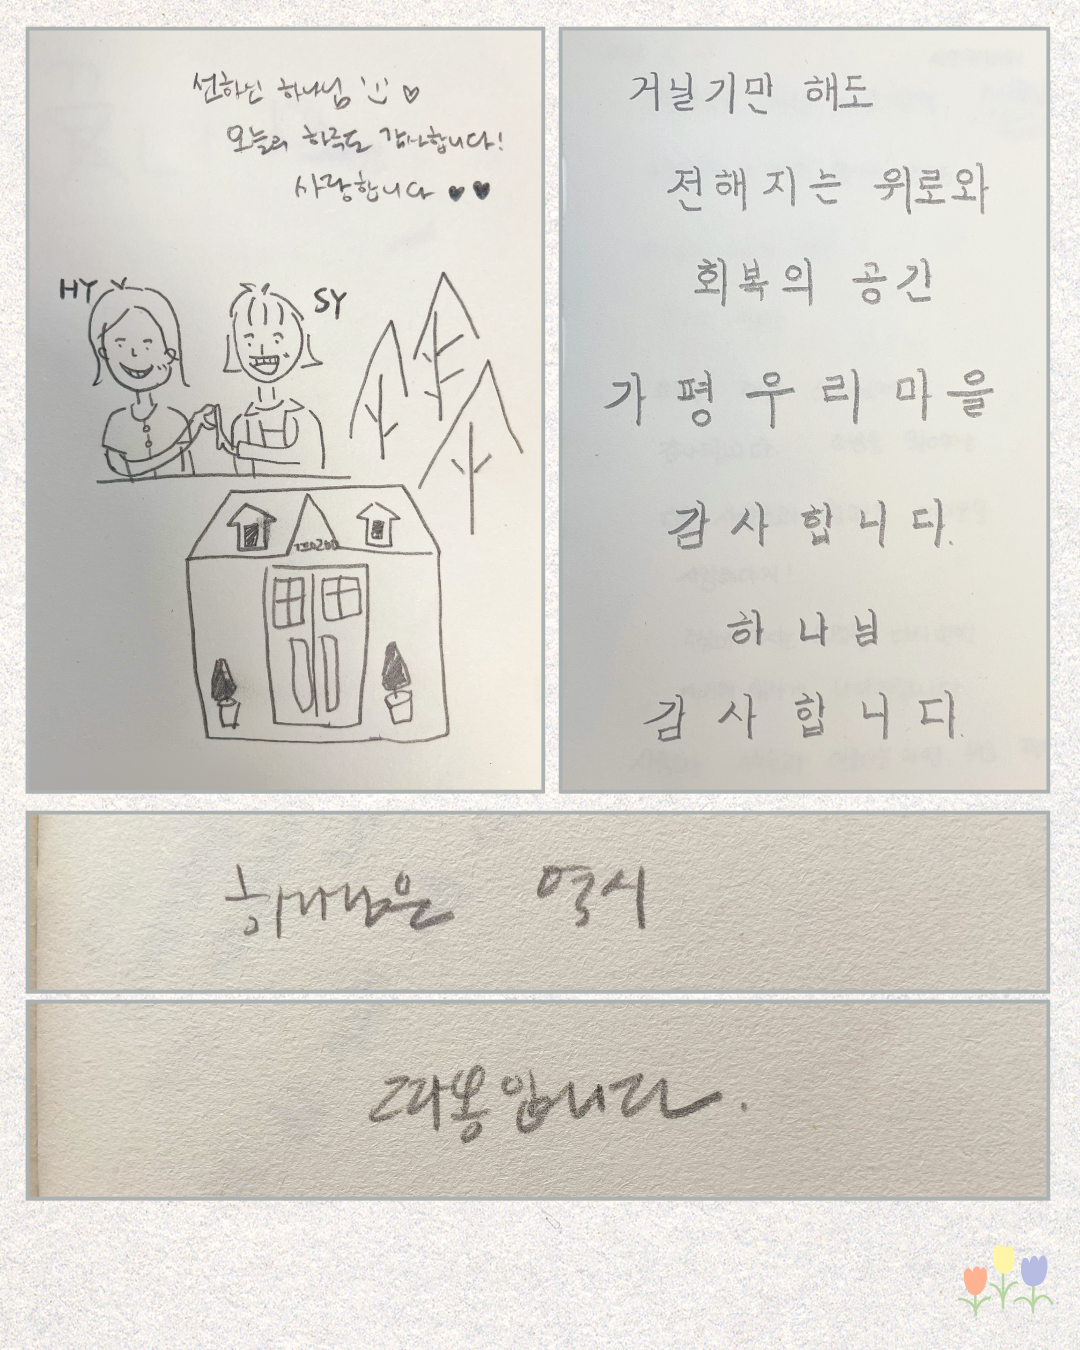 선하신 하나님 :) ♡
오늘의 하루도 감사합니다!
사랑합니다 ♥♥
HY
SY
거닐기만 해도
전해지는 위로와
회복의 공간
가평우리마을
감사합니다.
하나님
감사합니다.
하나님은 역시
따봉입니다.